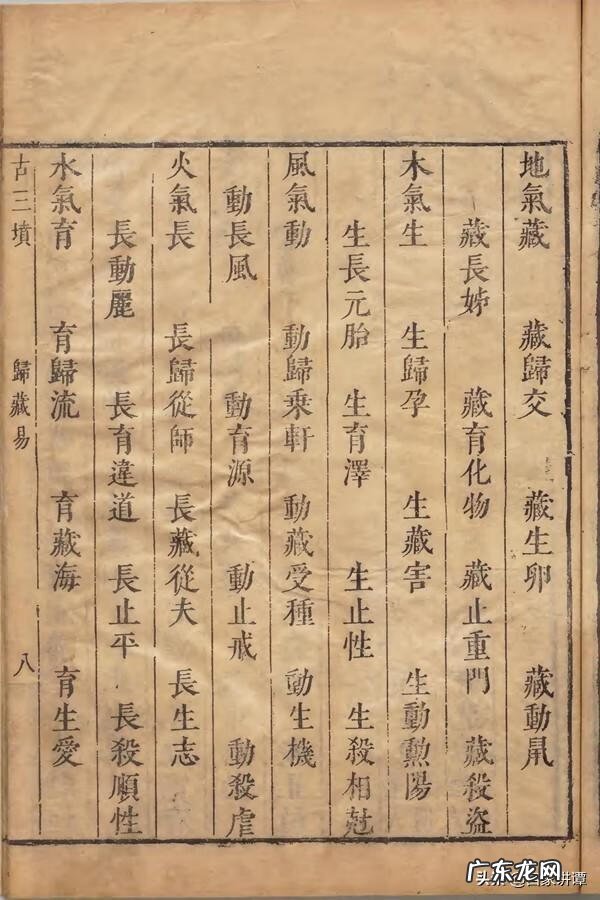 地氣藏 藏歸交 藏生卵 藏動鼠
藏長姊 藏育化物 藏止重門 藏殺盜
木氣生 生歸孕 生藏害 生動勲陽
生長元胎 生育澤 生止性 生殺相尅
風氣動 動歸乘軒 動藏受種 動生機
動長風 動育源 動止戒 動殺虐
火氣長 長歸從師 長藏從夫 長生志
長動麗 長育違道 長止平 長殺順性
水氣育 育歸流 育藏海 育生愛
古三墳 歸藏易 八
广东龙网